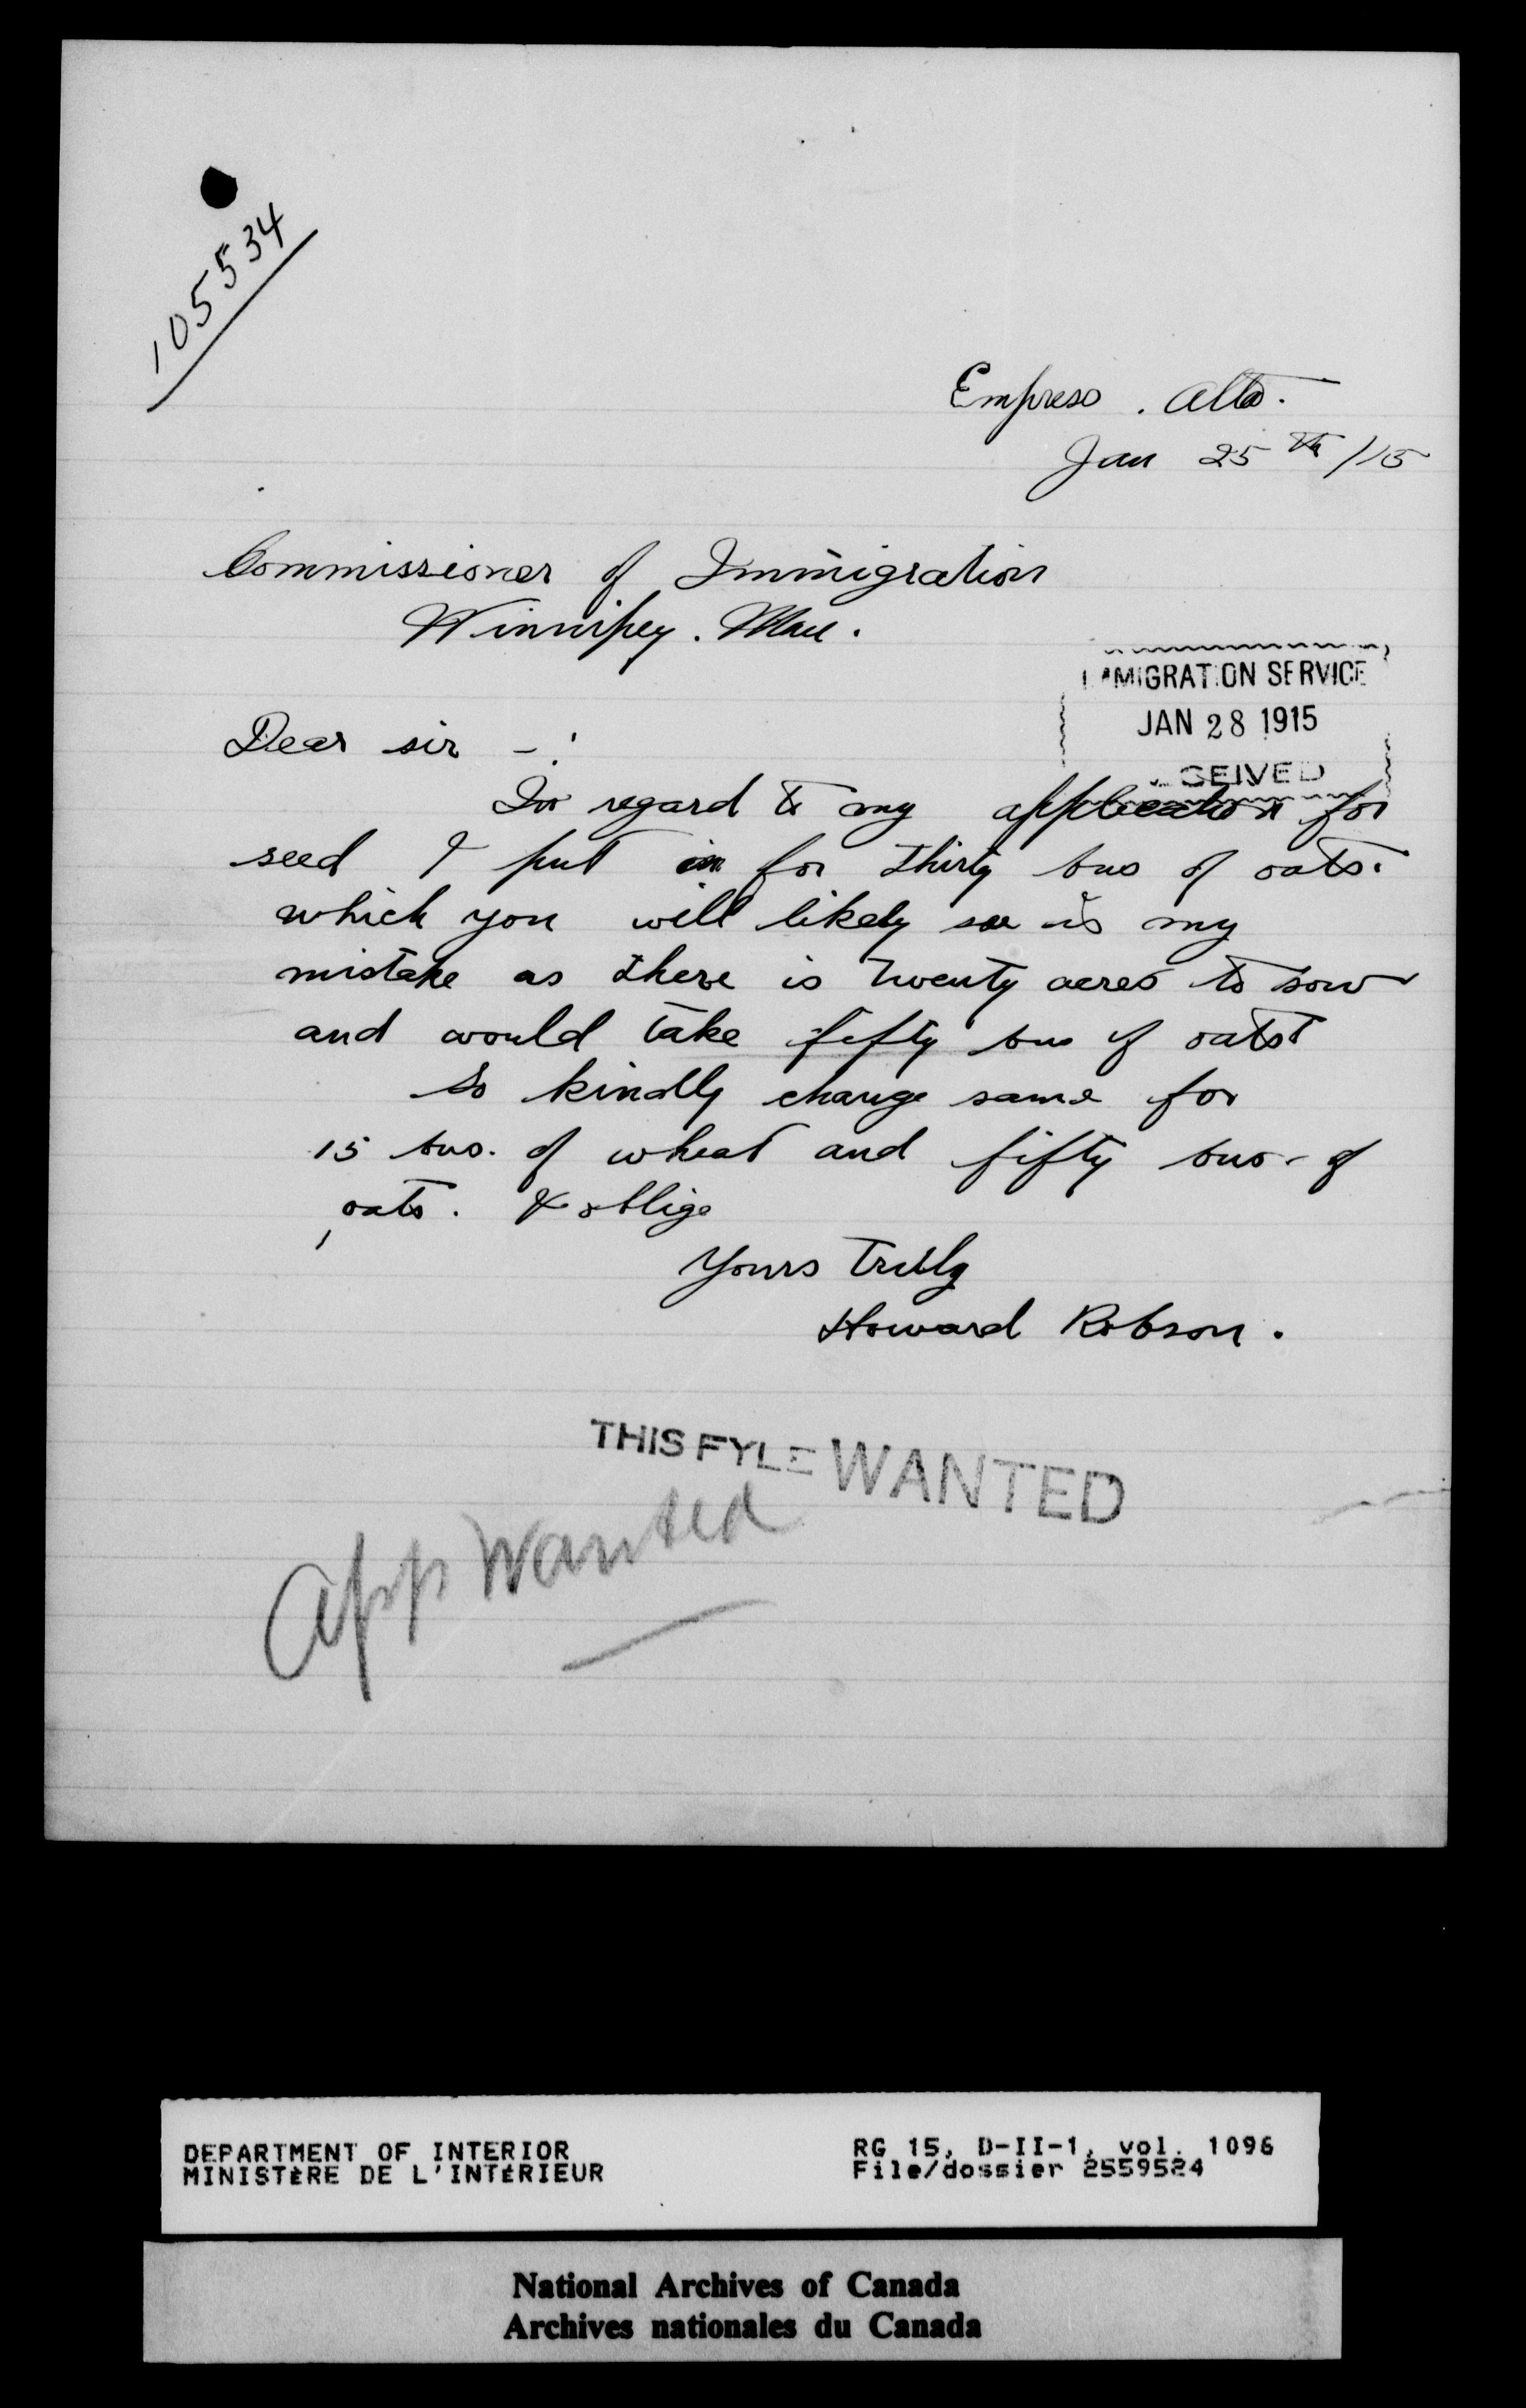 105534
Empress . Alta.
Jan 25th /15
Commissioner of Immigration
Winnipeg . Man.
IMMIGRATION SERVICE
JAN 28 1915
Dear sir - :
CEIVED
In regard to my application for
seed I put in for thirty bus of oats.
which you will likely see is my
mistake as there is twenty acres to sow
and would take fifty bus of oats
so kindly change same for
15 bus. of wheat and fifty bus - of
oats . & oblige
Yours Truly
Howard Robson .
THIS FYLE WANTED
App Wanted
DEPARTMENT OF INTERIOR
MINISTÈRE DE L'INTÉRIEUR
RG 15, D-II-1, vol. 1096
File/dossier 2559524
National Archives of Canada
Archives nationales du Canada